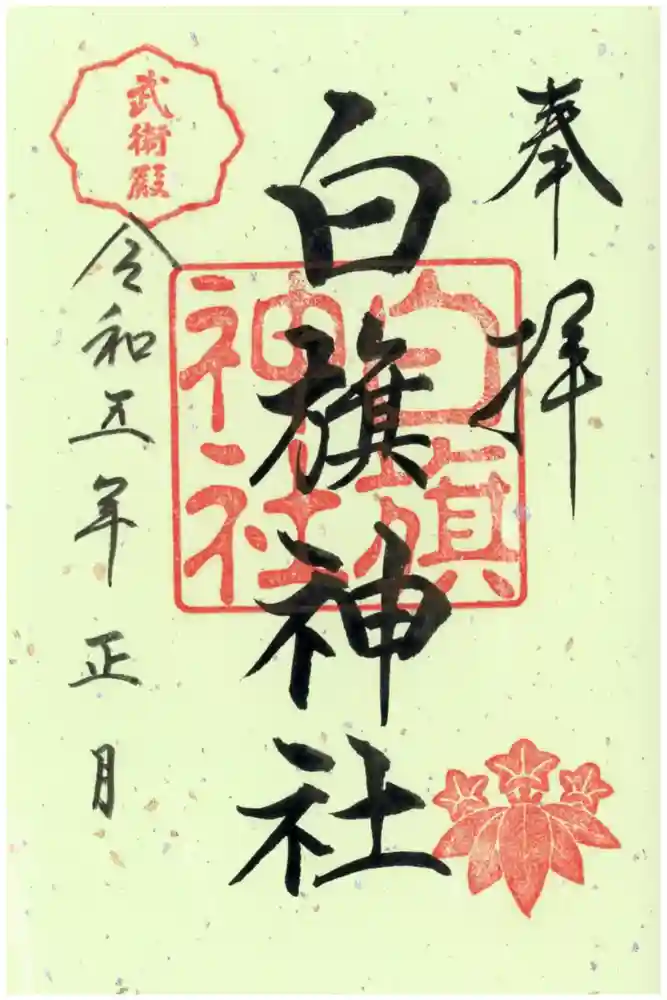 奉拝
白旗神社
白旗
神社
武衛殿
令和五年正月